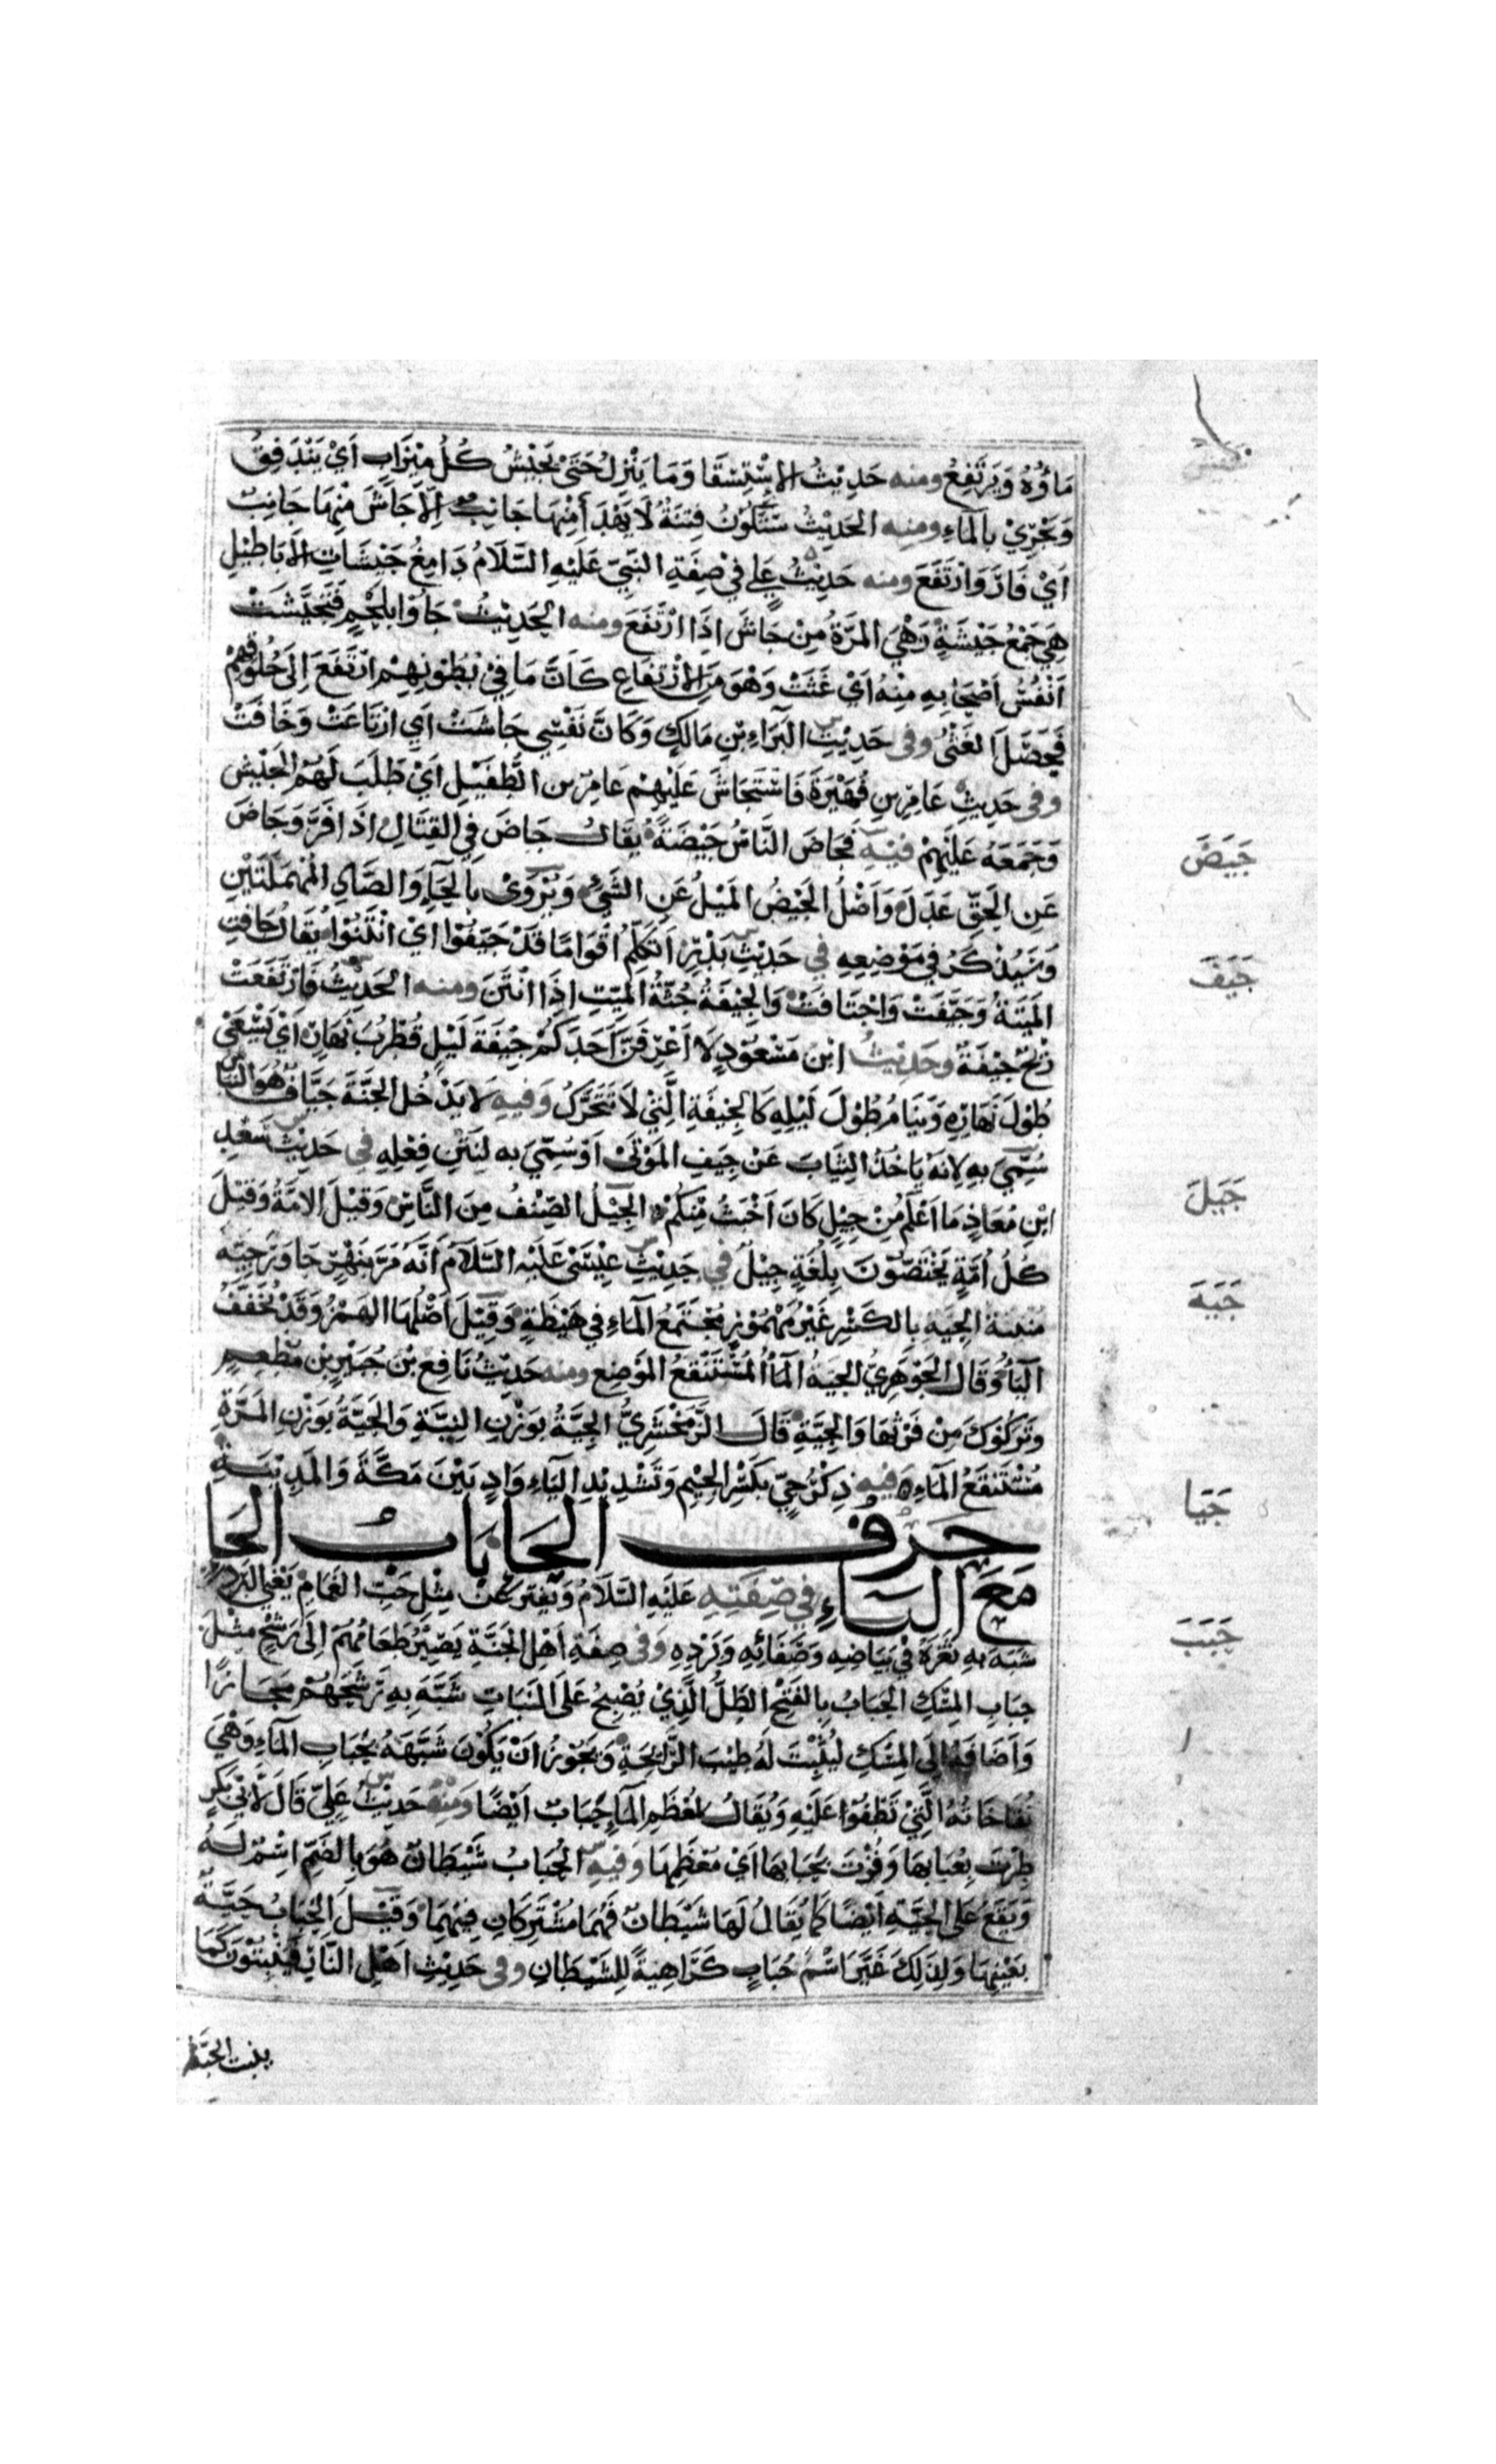 مَاؤُهُ وَيَرْتَفِعُ ومنه حَدِيْثُ الاسْتِسْقَا وَمَا يَنْزِلُ حَتّىٰ يَجِيْشَ كُلُّ مِيْزَابٍ اَيْ يَتَدَفَقُ
وَيَجْرِيْ بِالمَآءِ ومنه الحَدِيْثُ سَتَكُوْنُ فِتْنَةٌ لَا يَهْدَأُ مِنْهَا جَانِبٌ اِلَّا جَاشَ مِنْهَا جَانِبٌ
اَيْ فَارَ وَارْتَفَعَ ومنه حَدِيْثُ عَلِي فِيْ صِفَةِ النَّبِيِّ عَلَيْهِ السَّلَامُ دَامِغُ جَيْشَاتِ الاَبَاطِيْلِ
هِيَ جَمْعُ جَيْشَةٍ وَهْيَ المَرَّةُ مِنْ جَاشَ اِذَا ارْتَفَعَ ومنه الحَدِيْثُ جَاؤا بِلَحْمٍ فَتَجَيَّشَتْ
اَنْفُسُ اَصْحَابِهِ مِنْهُ اَيْ غَثَتْ وَهْوَ مِنَ الاِرْتِفَاعِ كَاَنَّ مَا فِيْ بُطُوْنِهِمْ ارْتَفَعَ اِلَى حُلُوْقِهِمْ
فَحَصَلَ الغَثْىُ وفى حَدِيْثِ البَرَاءِ بْنِ مَالِكٍ وَكَانَّ نَفْسِي جَاشَتْ اَيِ ارْتَاعَتْ وَخَافَتْ
وفى حَدِيْثِ عَامِرِ بنِ فُهَيْرَةَ فَاسْتَجَاشَ عَلَيْهِمْ عَامِرُ بن الطُّفَيْلِ اَيْ طَلَبَ لَهُمْ الجَيْشَ
وَجَمَعَهُ عَلَيْهِمْ فيْهِ فَجَاضَ النَّاسُ جَيْضَةً يقَالُ جَاضَ فِي القِتَالِ اذَا فَرَّ وَجَاضَ
عَنِ الحَقِّ عَدَلَ وَاَصْلُ الجَيْضُ المَيْلُ عَنِ الشَّيْءِ وَيُرْوَىْ بِالحَآءِ وَالصَّادِ المُهْمَلَتَيْنِ
وَسَيُذْكَرُ فِي مَوْضِعِهِ في حَدِيْثِ بَدْرٍ اَتُكَلِّمُ اَقْوَامًا قَدْ جَيَّفُوْا اَيْ انْتَنُوْا يُقَالُ جَافَتِ
المَيْتَةُ وَجَيَّفَتْ وَاجْتَافَتْ وَالجِيْفَةُ جُثَّةُ المَيِّتِ اِذَا انْتَنَ ومنه الحَدِيْثُ فَارْتَفَعَتْ
رِيْحُ جِيْفَةٍ وحَدِيْثُ ابْنِ مَسْعُوْدٍ لَا اَعْرِفَنَّ اَحَدَكُمْ جِيْفَةَ لَيْلٍ قُطْرُبَ نَهَارٍ اَيْ يَسْعَىٰ
طُوْلَ نَهَارِهِ وَيَنَامُ طُوْلَ لَيْلِهِ كَالجِيْفَةِ الَّتِيْ لَا تَتَحَرَّكُ وَفيهِ لَا يَدْخُلُ الجَنَّةَ جَيَّافٌ هُوَ النَّبَّاش
سُمِّيَ بِهِ لِانَّهُ يَاخُذُ الثِّيَابَ عَنْ جِيَفِ المَوْتَىْ اَوْ سُمِّيَ به لِنَتْنِ فِعْلِهِ فى حَدِيْثِ سَعْدِ
ابْنِ مُعَاذٍ مَا اَعْلَمُ مِنْ جِيْلٍ كَانَ اَخْبَثُ مِنْكُمْ الجِيْلُ الصِّنْفُ مِنَ النَّاسِ وَقيْلَ الامَّةُ وَقيْلَ
كُلُّ اُمَّةٍ يَخْتَصُّوْنَ بِلُغَةٍ جِيْلٌ في حَدِيْثِ عِيْسَىْ عَلَيْهِ السَّلَامُ اَنَّهُ مَرَّ بِنَهْرٍ جَاوَرَ جِيَّةً
مُنْتِنَةً الجِيَّةُ بِالكَسْرِ غَيْرُ مَهْمُوْزٍ مُجْتَمَعُ المَآءِ فِي هَبْطَةٍ وَقِيْلَ اَصْلُهَا الهَمْزُ وَقَدْ تُخَفَّفُ
اليَآءُ وَقَالَ الجَوْهَرِيُّ الجِيَّةُ المَآءُ المُسْتَنْقِعُ المَوْضِعِ ومنه حَدِيْثُ نَافِعِ بْنِ جُبَيْرِ بْنِ مُطْعِمٍ
وَتَرَكُوْكَ مِنْ قَرْنِهَا وَالجِيَّةِ قَالَ الزَّمَخْشَرِيُّ الجِيَّةُ بِوَزْنِ النِّيَّةِ وَالجَيَّةُ بِوَزْنِ المَرَّةِ
مُسْتَنْقَعُ المَآءِ وَفيهِ ذِكْرُ جِيٍّ بِكَسْرِ الجِيْمِ وَتَشْدِيْدِ اليَاءِ وَادٍ بَيْنَ مَكَّةَ وَالمَدِيْنَةِ
حَرْفُ الحَا بَابُ الحَا
مَعَ البَاءِ في صِفَتِهِ عَلَيْهِ السَّلَامُ وَيَفْتَرُّ عَنْ مِثْلِ حَبِّ الغَمَامِ يَعْنِي البَرَد
شَبَّهَ بِهِ ثَغْرَهُ فِيْ بَيَاضِهِ وَصَفَائِهِ وَبَرْدِهِ وَفى صِفَةِ اَهْلِ الجَنَّةِ يَصِيْرُ طَعَامُهُمْ اِلَى رَشْحٍ مثْلَ
حَبَابِ المِسْكِ الحَبَابُ بِالفَتْحِ الطَّلُّ الَّذِيْ يُصْبِحُ عَلَى النَّبَاتِ شَبَّهَ بِهِ رَشْحَهُمْ مَجَازًا
وَاَضَافَهُ اِلَى المِسْكِ لِيُثْبِتَ لَهُ طِيْبَ الرَّائِحَةِ وَيَجُوْزُ اَنْ يَكُوْنَ شَبَّهَهُ بِحَبَابِ المَآءِ وَهْيَ
نُفَّاخَاتُهُ الَّتِيْ تَطْفُوْا عَلَيْهِ وَيُقَالُ لِمُعْظَمِ المَآءِ حَبَابٌ اَيْضًا وَمنْهُ حَدِيْثُ عَلِيٍّ قَالَ لِأَبْي بَكْرٍ
طِرْتَ بِعُبَابِهَا وَفُزْتَ بِحَبَابِهَا اَيْ مُعْظَمِهَا وَفيهِ الحُبَابُ شَيْطَانٌ هُوَ بِالضَمِّ اسْمٌ لَهُ
وَيَقَعُ عَلَى الحَيَّةِ اَيْضًا كَمَا يُقَالُ لَهَا شَيْطَانٌ فَهُمَا مُشْتَرِكَانِ فِيْهِمَا وَقِيْلَ الحُبَابُ حَيَّةٌ
بِعَيْنِهَا وَلِذَلِكَ غَيَّرَ اسْمُ حُبَابٍ كَرَاهِيَةً لِلشَّيْطَانِ وفى حَدِيْثِ اَهْلِ النَّارِ فَيَنْبُتُوْنَ كَمَا
جَيَضَ
جَيَفَ
جَيَلَ
جَيَهَ
جَيَا
حَبَبَ